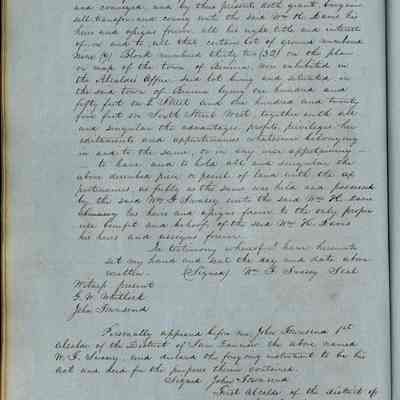 and conveyed, and by these presents doth grant, bargain
sell transfer and convey unto the said Wm H. Davis his
heirs and assigns forever all his right title and interest
of in and to all that certain lot of ground marked
Block numbered thirty two (32) on the plan
or map of the town of Benicia now exhibited in
the Alcaldes Office said lot being and situated in
the said town of Benicia lying one hundred and
fifty feet on Street and One hundred and twenty
five feet on South Street West, together with all
and singular the advantages, profits, privileges her
editaments and appurtenances whatever belonging
in and to the same, or in any wise appertaining
to have and to hold all and singular the
above described piece or parcel of land with the ap
purtenances as fully as the same was held and possessed
by the said Wm F. Swasey unto the said Wm H. Davis
his heirs and assigns forever to the only proper
use benefit and behoof, of the said Wm H. Davis
his heirs and assigns forever
In testimony whereof I have hereunto
set my hand and seal the day and date above
written. (Signed) Wm F Swasey Seal
Witness present
G. W. Whitlock
John Townsend
Personally appeared before me, John Townsend 1st
Alcalde of the District of San Francisco the above named
W. F. Swasey, and declared the foregoing instrument to be his
act and deed for the purpose therein contained.
Signed John Townsend
First Alcalde of the district of